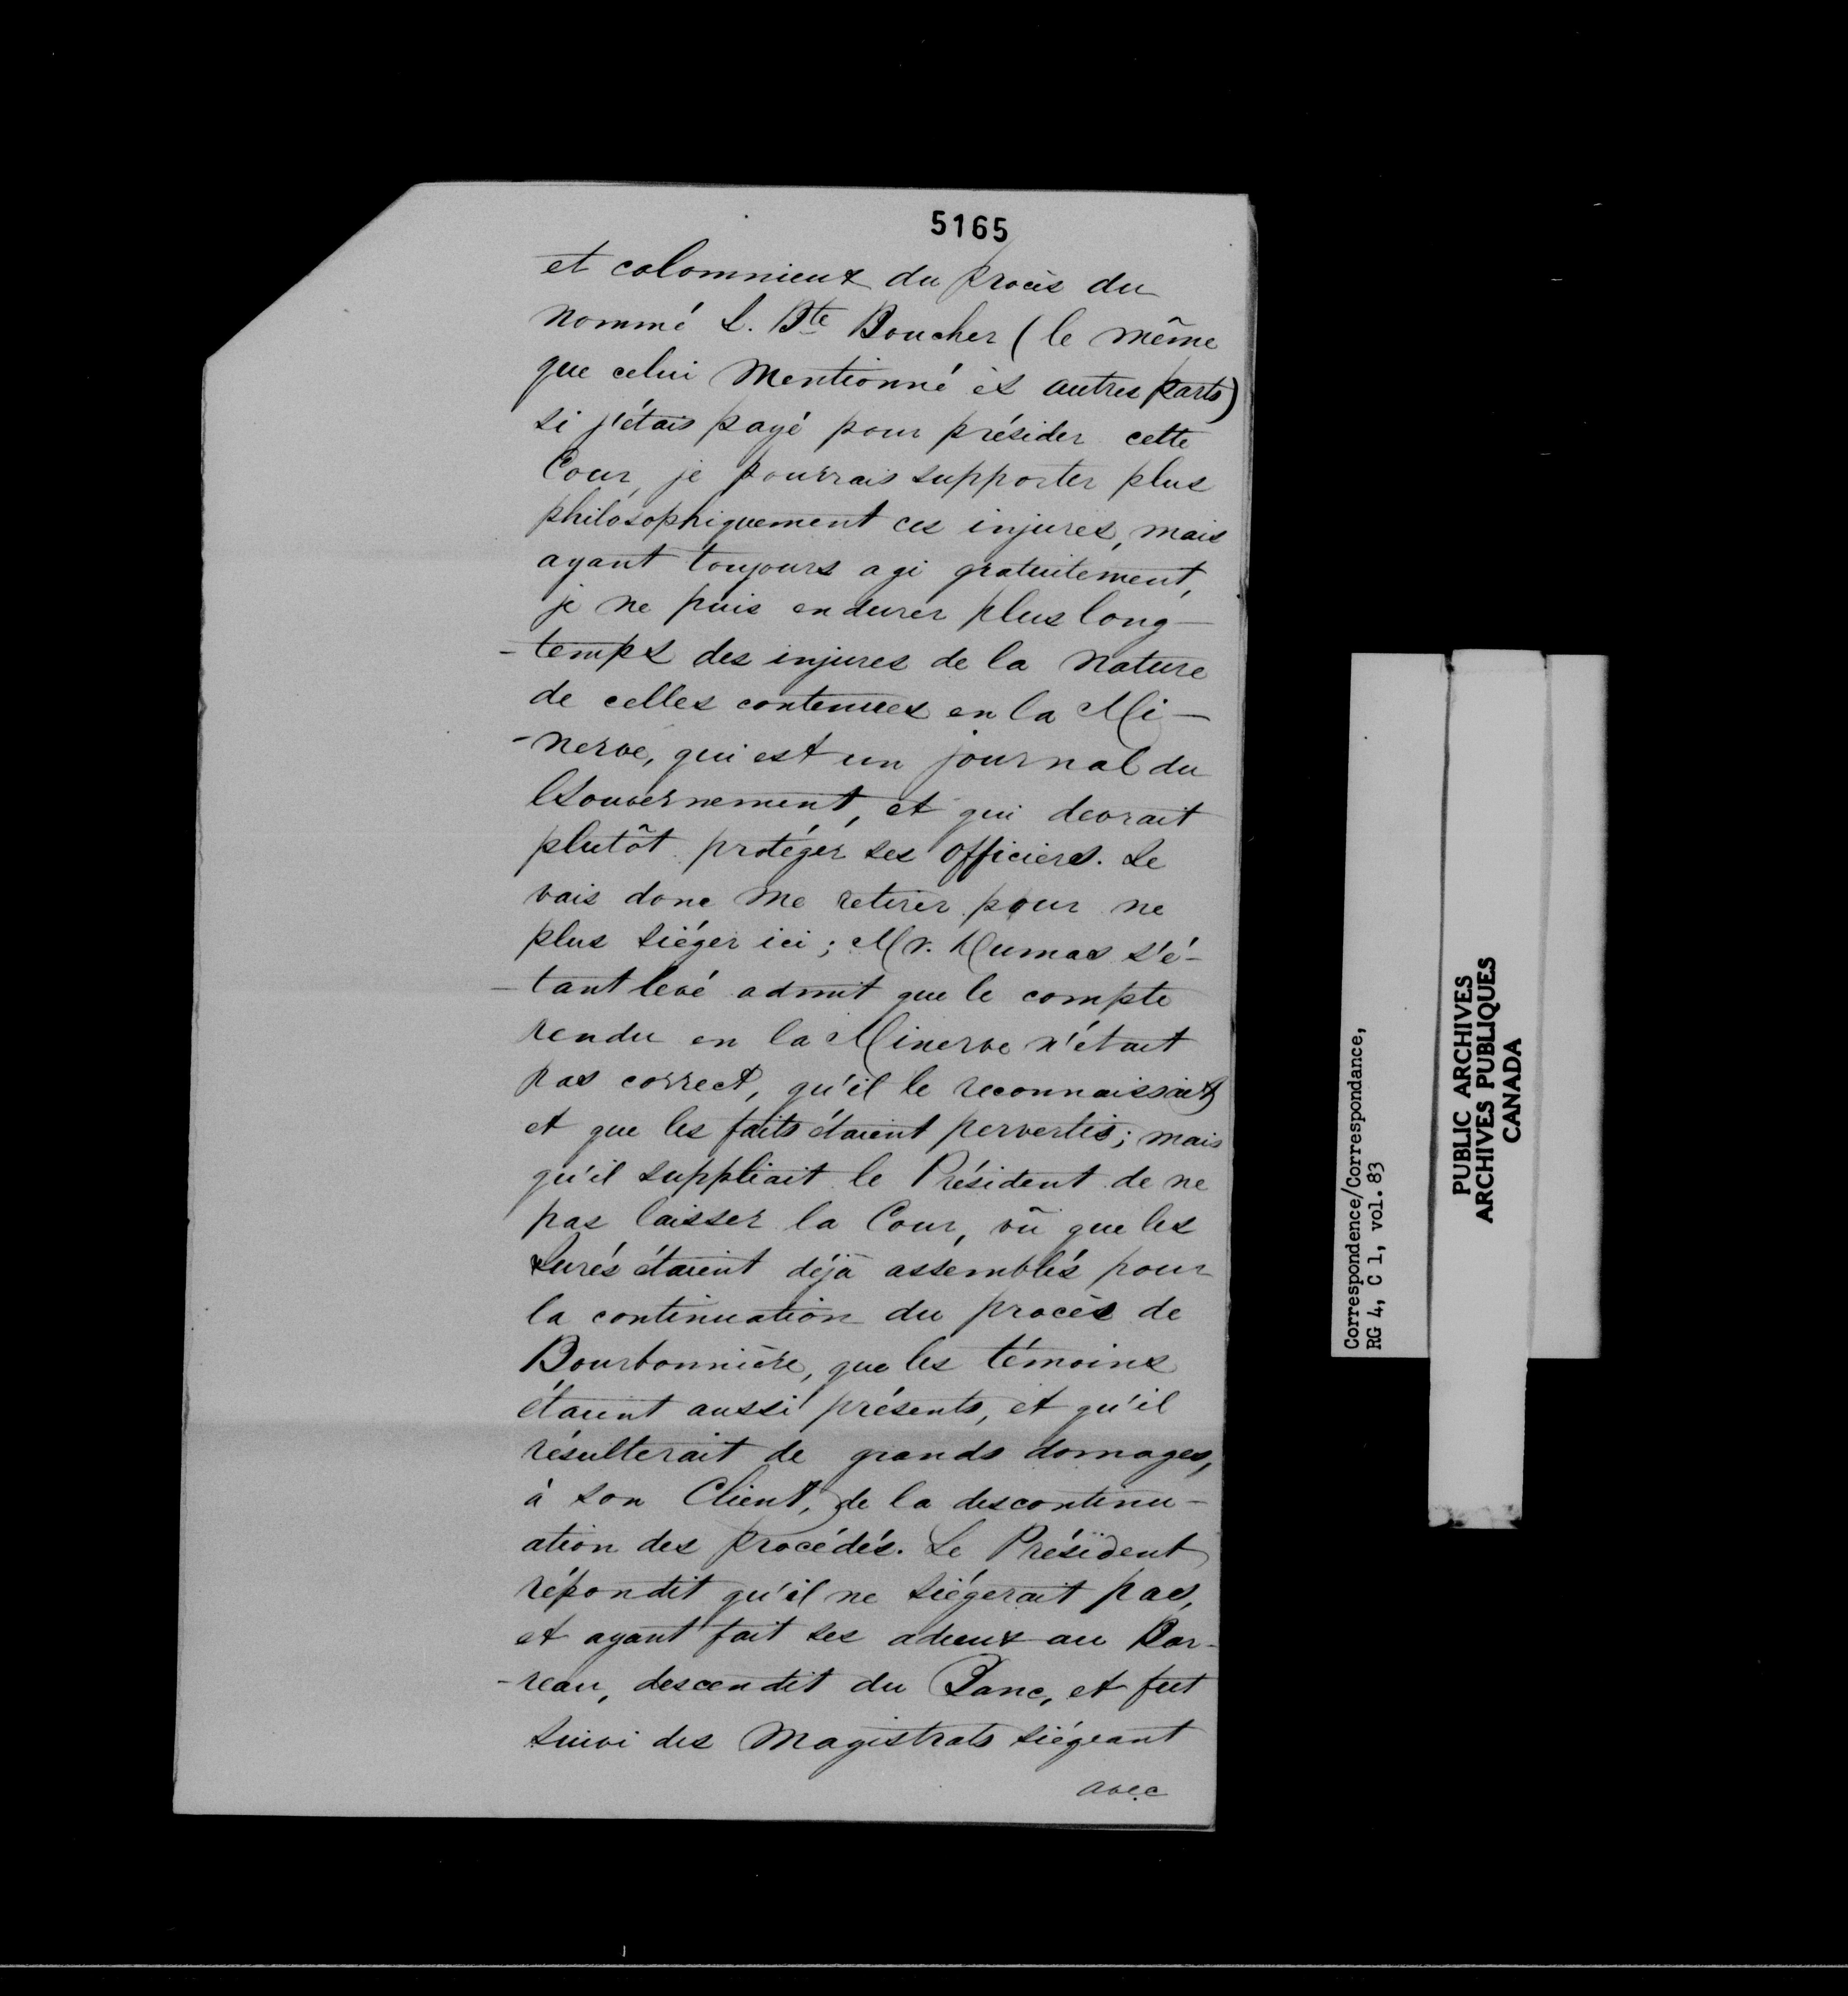 5165
et calomnieux du procès du
nommé J. Bte Boucher (le même
que celui mentionné ès autres parts)
si j'étais payé pour présider cette
Cour, je pourrais supporter plus
philosophiquement ces injures, mais
ayant toujours agi gratuitement,
je ne puis endurer plus long-
-temps des injures de la nature
de celles contenues en la Mi-
-nerve, qui est un journal du
Gouvernement, et qui devrait
plutôt protéger ses officiers. Je
vais donc me retirer pour ne
plus siéger ici; Mr. Dumas s'é-
-tant levé admit que le compte
rendu en la Minerve n'était
pas correct, qu'il le reconnaissait
et que les faits étaient pervertis; mais
qu'il suppliait le Président de ne
pas laisser la Cour, vû que les
Jurés étaient déjà assemblés pour
la continuation du procès de
Bourbonnière, que les témoins
étaient aussi présents, et qu'il
résulterait de grands domages,
à son Client, de la descontinu-
ation des procédés. Le Président
répondit qu'il ne siégerait pas,
et ayant fait ses adieux au Bar-
-reau, descendit du Banc, et fut
suivi des Magistrats siégeant
avec
Correspondence/Correspondance,
RG 4, C 1, vol. 83
PUBLIC ARCHIVES
ARCHIVES PUBLIQUES
CANADA